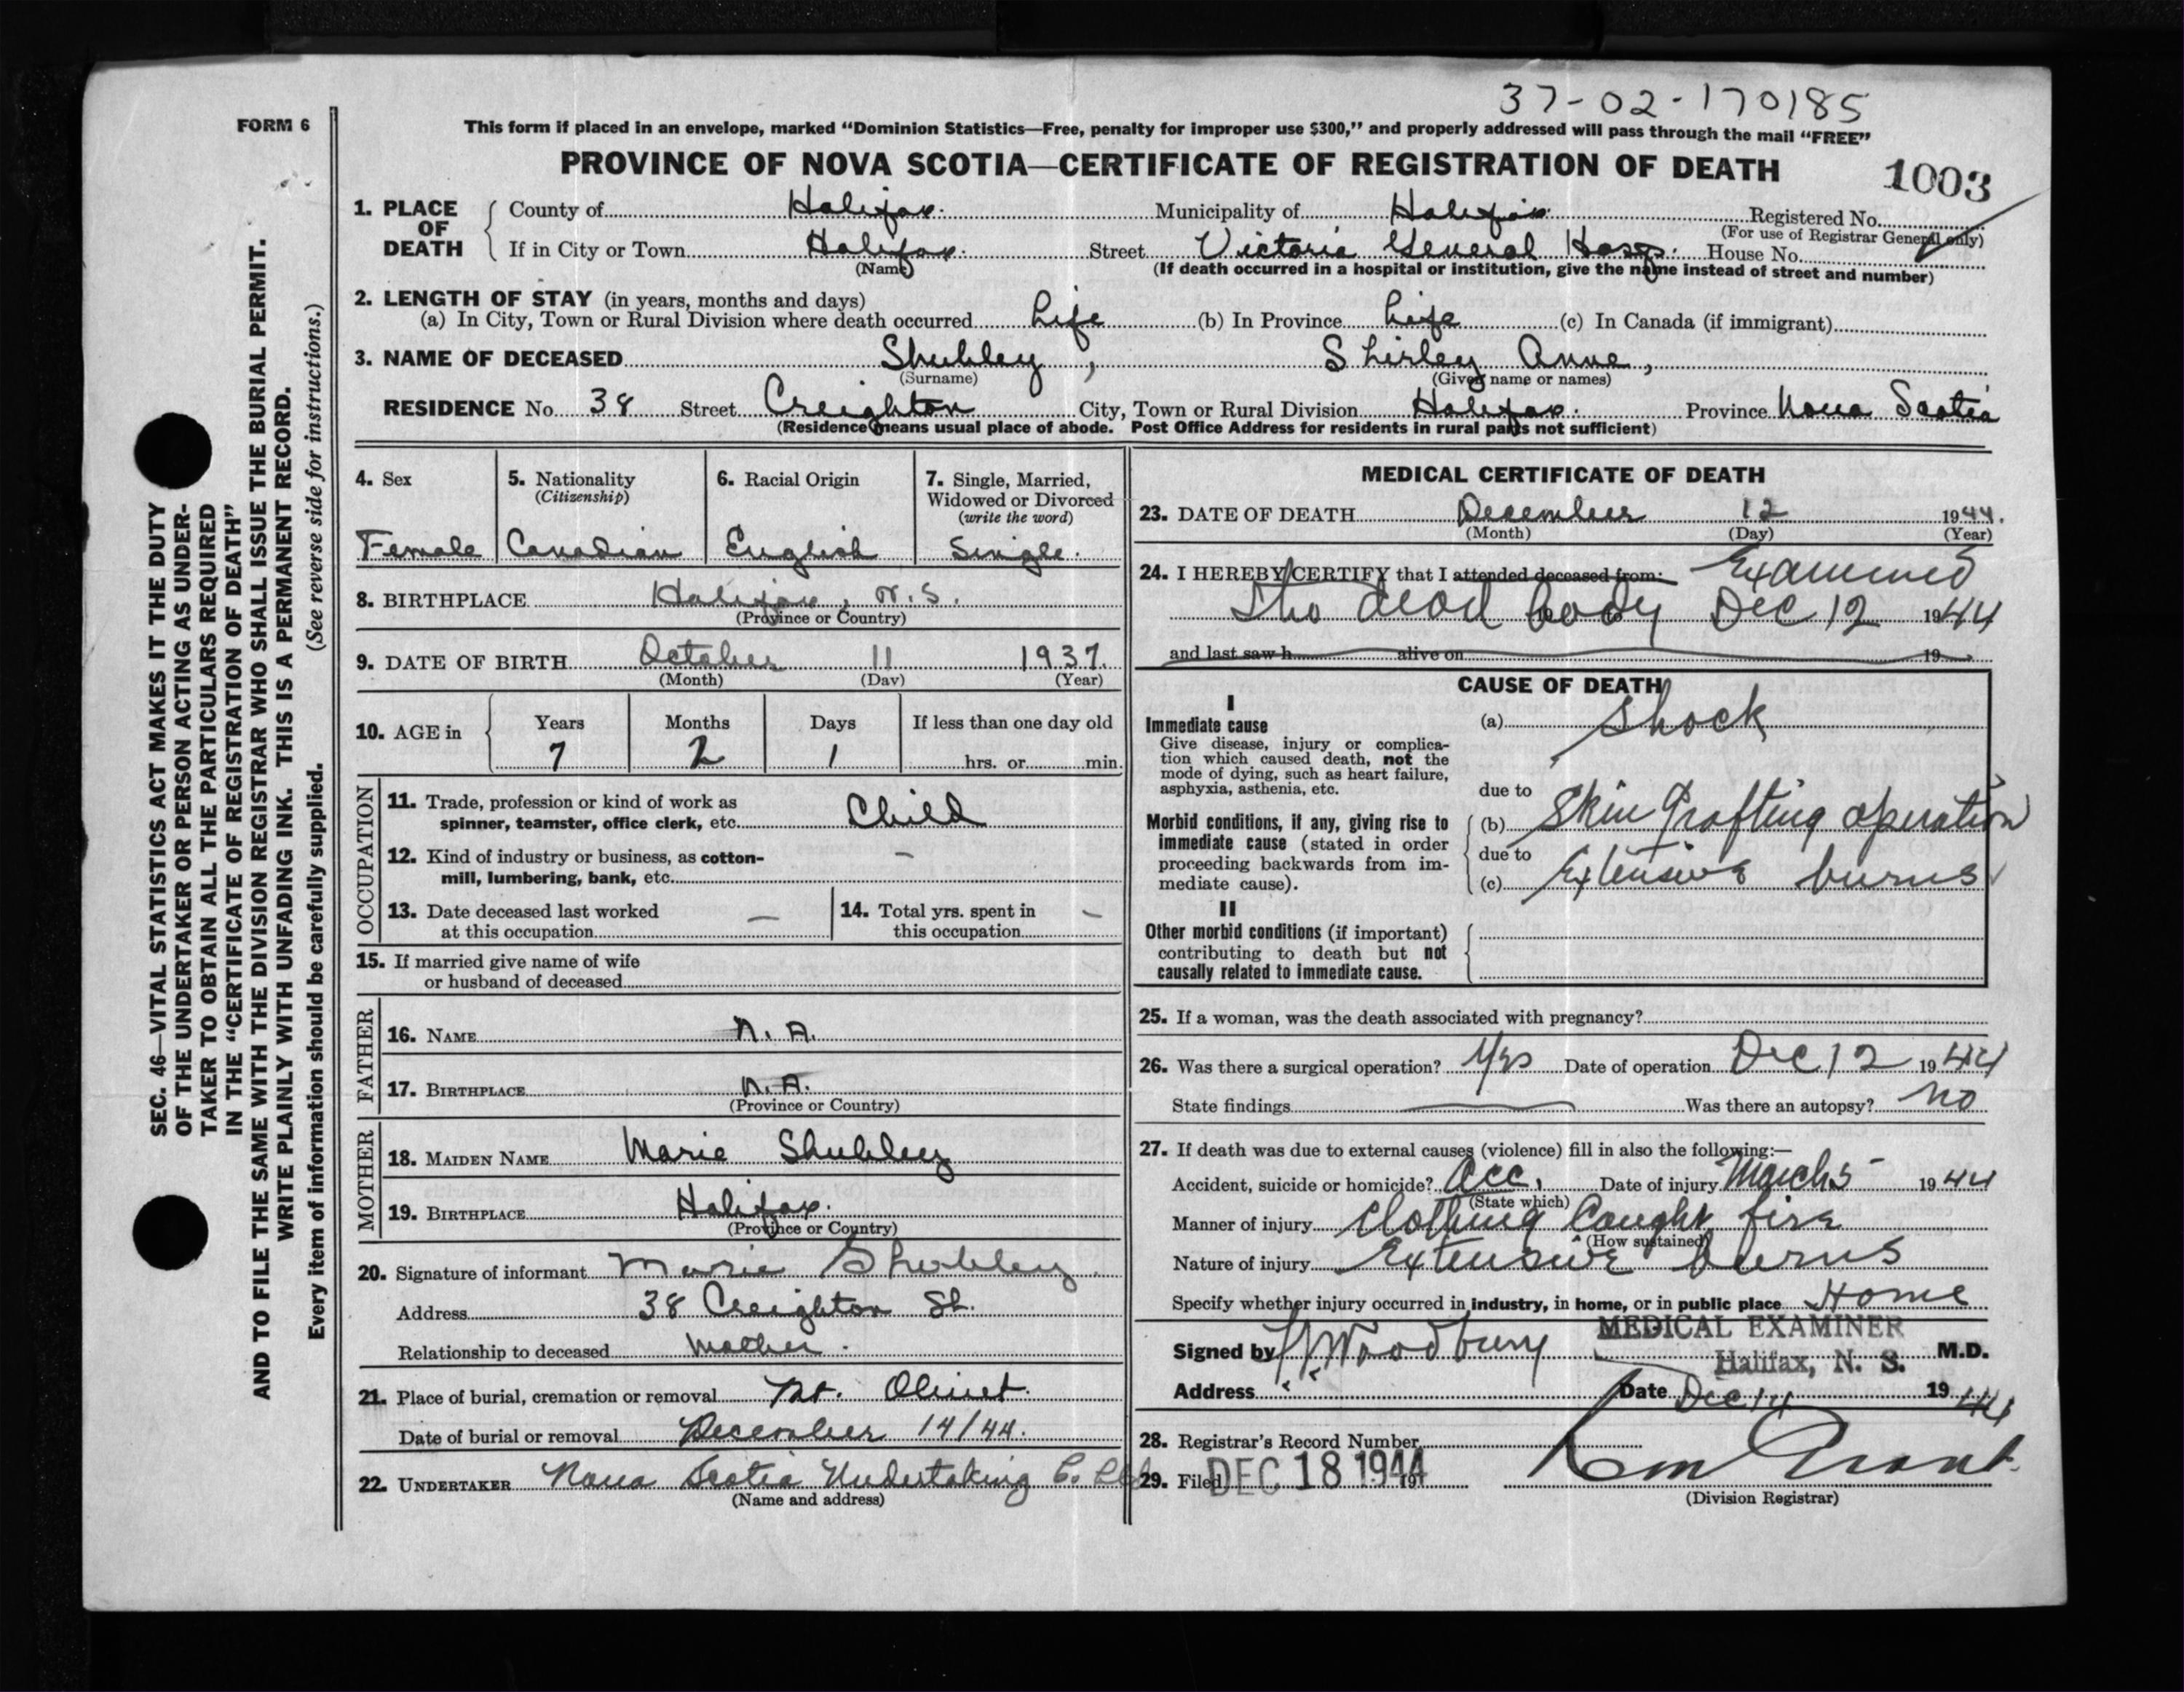 37-02-170185
FORM 6
This form if placed in an envelope, marked “Dominion Statistics—Free, penalty for improper use $300,” and properly addressed will pass through the mail “FREE”
PROVINCE OF NOVA SCOTIA—CERTIFICATE OF REGISTRATION OF DEATH
1003
1. PLACE OF DEATH
County of Halifax. Municipality of Halifax. Registered No.
(For use of Registrar General only)
If in City or Town Halifax. Street Victoria General Hosp. House No.
(Name) (If death occurred in a hospital or institution, give the name instead of street and number)
2. LENGTH OF STAY (in years, months and days)
(a) In City, Town or Rural Division where death occurred Life (b) In Province Life (c) In Canada (if immigrant)
3. NAME OF DECEASED Shubley, Shirley Anne,
(Surname) (Given name or names)
RESIDENCE No. 38 Street Creighton City, Town or Rural Division Halifax. Province Nova Scotia
(Residence means usual place of abode. Post Office Address for residents in rural parts not sufficient)
4. Sex
Female
5. Nationality
(Citizenship)
Canadian
6. Racial Origin
English
7. Single, Married,
Widowed or Divorced
(write the word)
Single.
8. BIRTHPLACE Halifax, N.S.
(Province or Country)
9. DATE OF BIRTH October 11 1937.
(Month) (Day) (Year)
10. AGE in Years Months Days If less than one day old
7 2 1 hrs. or min.
OCCUPATION
11. Trade, profession or kind of work as
spinner, teamster, office clerk, etc. Child
12. Kind of industry or business, as cotton-
mill, lumbering, bank, etc. –
13. Date deceased last worked
at this occupation —
14. Total yrs. spent in
this occupation –
15. If married give name of wife
or husband of deceased
FATHER
16. NAME N. A.
17. BIRTHPLACE N. A.
(Province or Country)
MOTHER
18. MAIDEN NAME Marie Shubley
19. BIRTHPLACE Halifax.
(Province or Country)
20. Signature of informant Marie Shubley
Address 38 Creighton St.
Relationship to deceased Mother.
21. Place of burial, cremation or removal Mt. Olivet.
Date of burial or removal December 14/44.
22. UNDERTAKER Nova Scotia Undertaking Co. Ltd
(Name and address)
MEDICAL CERTIFICATE OF DEATH
23. DATE OF DEATH December 12 1944.
(Month) (Day) (Year)
24. I HEREBY CERTIFY that I attended deceased from: Examined
the dead body Dec 12 1944
and last saw h alive on 19
CAUSE OF DEATH
I
Immediate cause
Give disease, injury or complica-
tion which caused death, not the
mode of dying, such as heart failure,
asphyxia, asthenia, etc.
(a) Shock
due to
Morbid conditions, if any, giving rise to
immediate cause (stated in order
proceeding backwards from im-
mediate cause).
(b) Skin grafting operation
due to
(c) Extensive burns
II
Other morbid conditions (if important)
contributing to death but not
causally related to immediate cause.
25. If a woman, was the death associated with pregnancy?
26. Was there a surgical operation? Yes Date of operation Dec 12 1944
State findings Was there an autopsy? No
27. If death was due to external causes (violence) fill in also the following:—
Accident, suicide or homicide? Acc. Date of injury March 5 1944
(State which)
Manner of injury Clothing Caught fire
(How sustained)
Nature of injury Extensive burns
Specify whether injury occurred in industry, in home, or in public place Home
MEDICAL EXAMINER
Signed by Woodbury Halifax, N. S. M.D.
Address " " Date Dec 14 1944
28. Registrar's Record Number
29. Filed DEC 18 1944 191
(Division Registrar)
SEC. 46—VITAL STATISTICS ACT MAKES IT THE DUTY
OF THE UNDERTAKER OR PERSON ACTING AS UNDER-
TAKER TO OBTAIN ALL THE PARTICULARS REQUIRED
IN THE “CERTIFICATE OF REGISTRATION OF DEATH”
AND TO FILE THE SAME WITH THE DIVISION REGISTRAR WHO SHALL ISSUE THE BURIAL PERMIT.
WRITE PLAINLY WITH UNFADING INK. THIS IS A PERMANENT RECORD.
Every item of information should be carefully supplied. (See reverse side for instructions.)